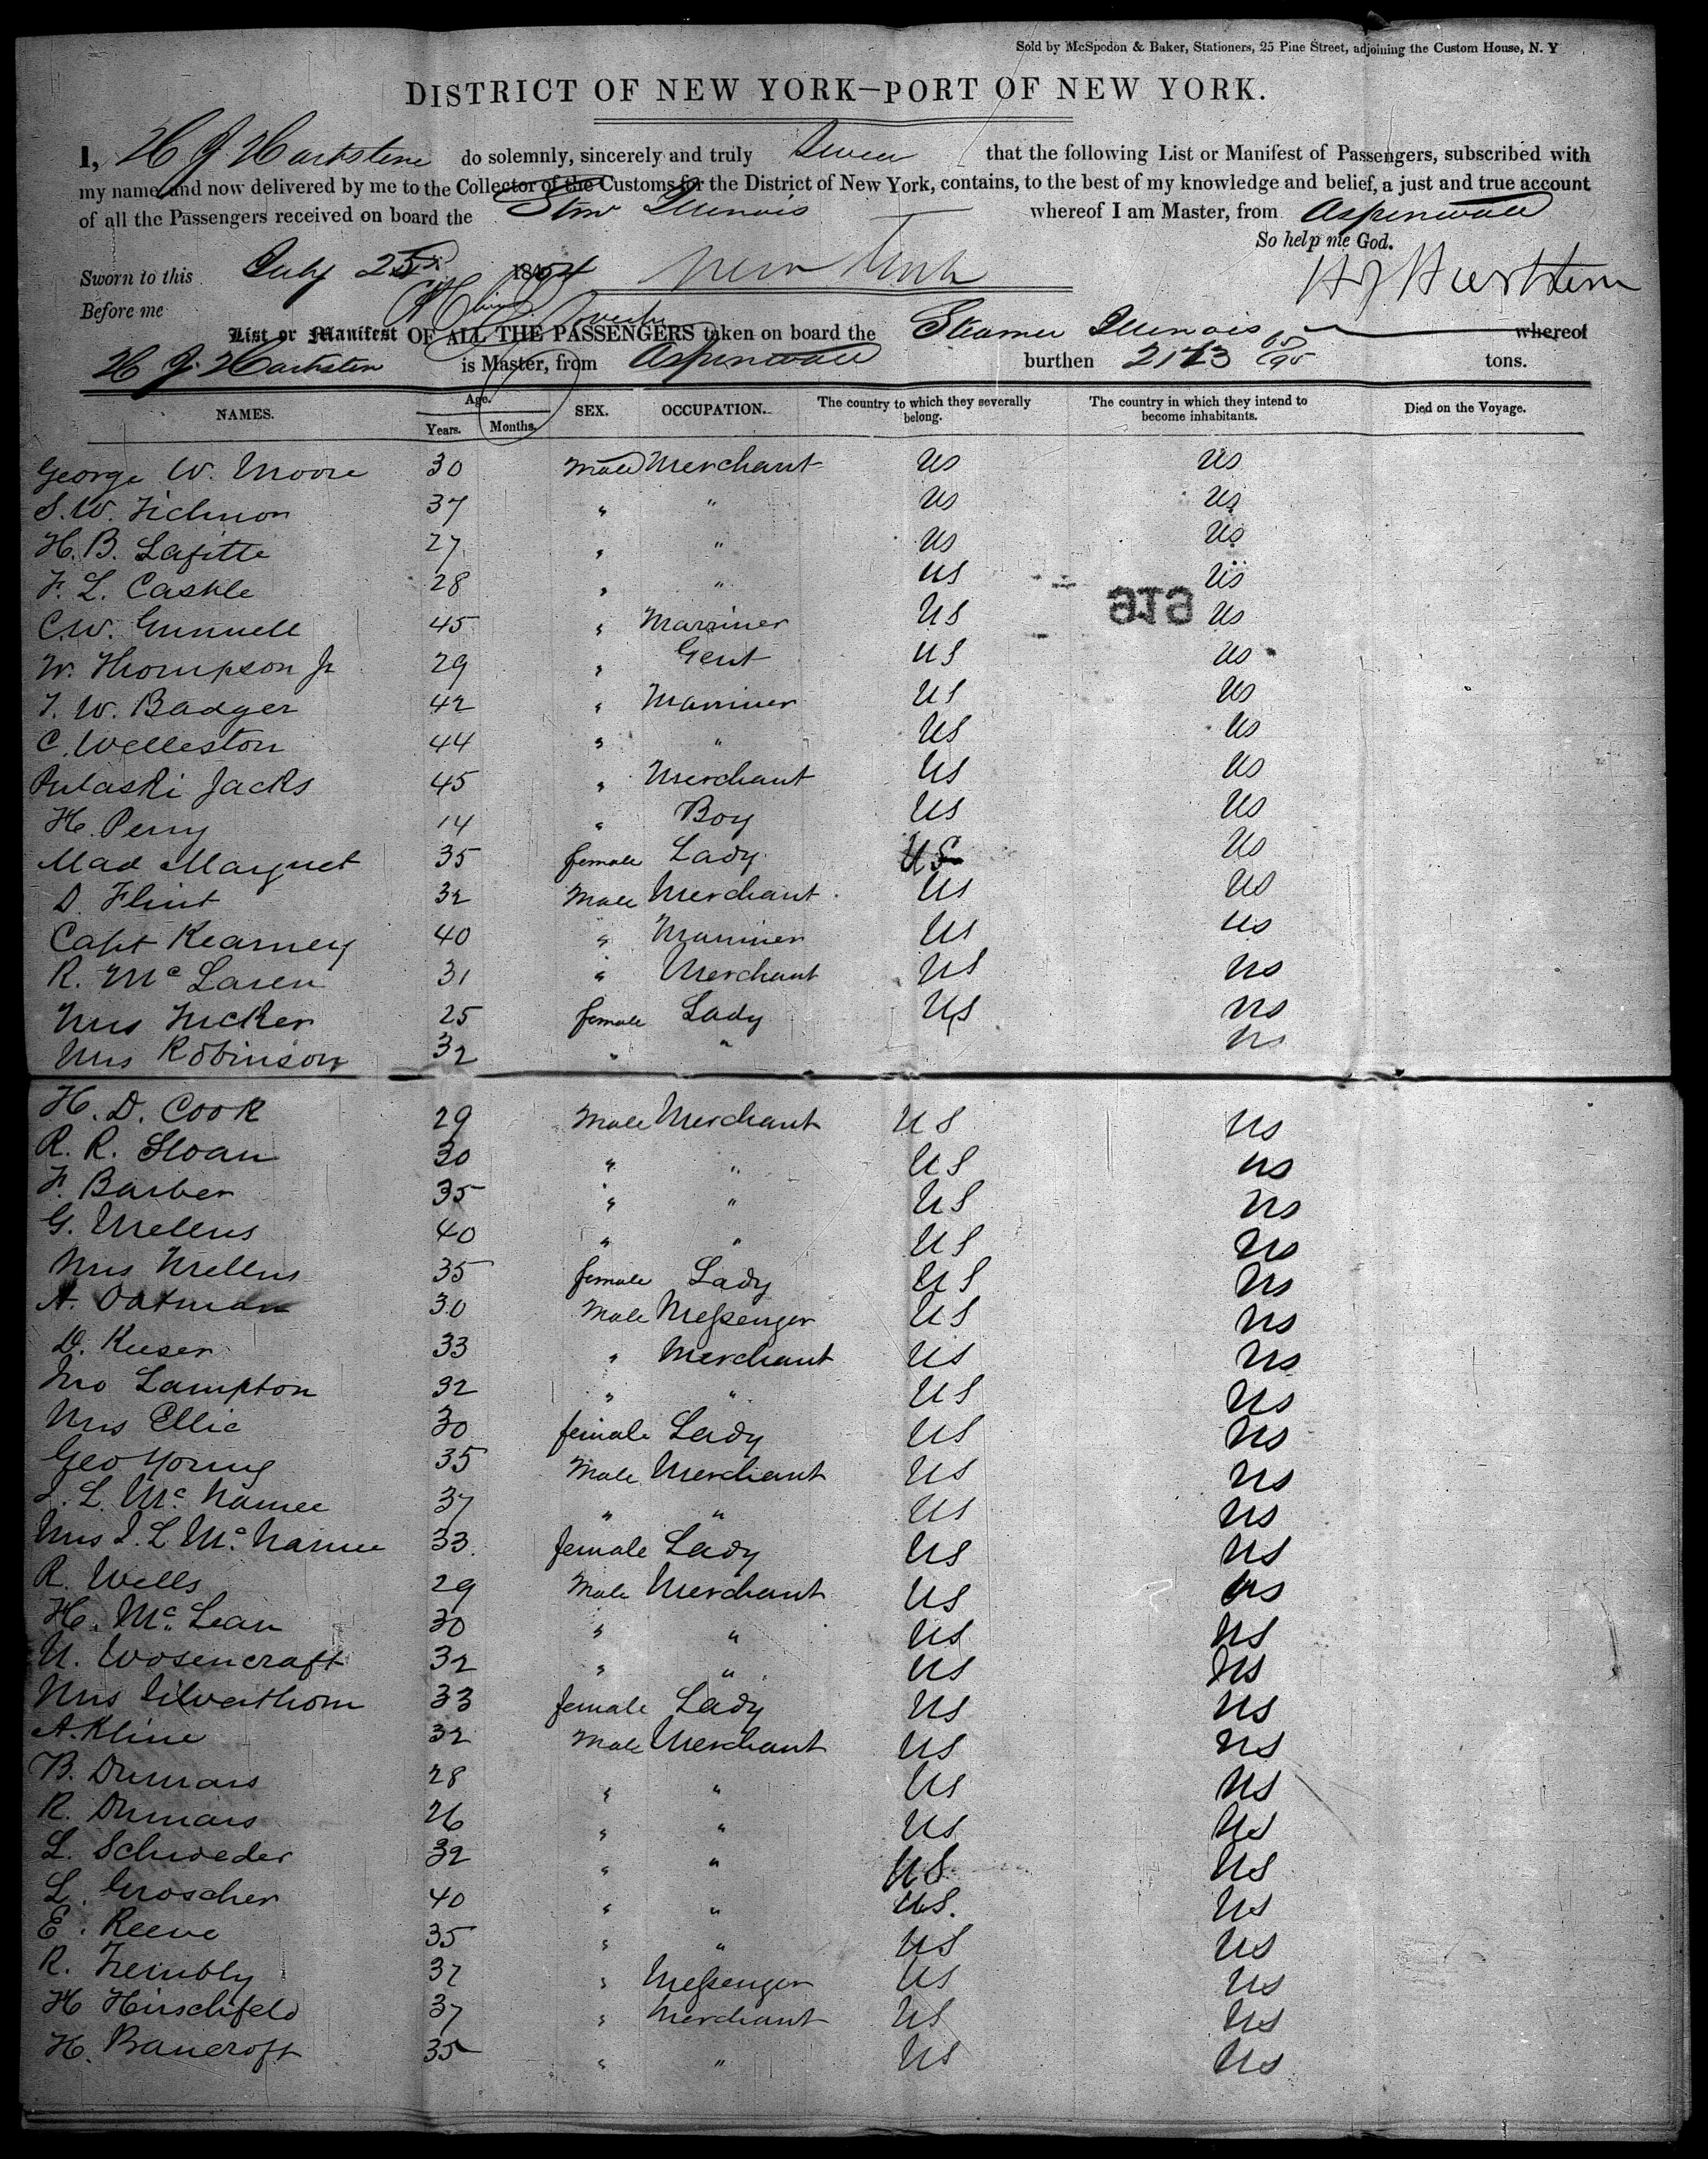 Sold by McSpedon & Baker, Stationers, 25 Pine Street, adjoining the Custom House, N. Y
DISTRICT OF NEW YORK—PORT OF NEW YORK.
I, H J Hartstene do solemnly, sincerely and truly Swear that the following List or Manifest of Passengers, subscribed with
my name and now delivered by me to the Collector of the Customs for the District of New York, contains, to the best of my knowledge and belief, a just and true account
of all the Passengers received on board the Stmr Illinois whereof I am Master, from Aspinwall
So help me God.
Sworn to this July 25th 1854 New York H J Hartstene
Before me
List or Manifest OF ALL THE PASSENGERS taken on board the Steamer Illinois whereof
H J Hartsten is Master, from Aspinwall burthen 2123 65/95 tons.
NAMES. Age. Years. Months. SEX. OCCUPATION. The country to which they severally belong. The country in which they intend to become inhabitants. Died on the Voyage.
George W. Moore 30 Male Merchant US US
S. W. Tichnor 37 " " US US
H. B. Lafitte 27 " " US US
F. L. Castle 28 " " US US
919
C. W. Gunnell 45 " Marriner US US
W. Thompson Jr 29 " Gent US US
T. W. Badger 42 " Marriner US US
C. Welleston 44 " " US US
Pulaski Jacks 45 " Merchant US US
H. Perry 14 " Boy US US
Mad Marquet 35 female Lady US US
D. Flint 32 Male Merchant US US
Capt Kearney 40 " Marriner US US
R. McLaren 31 " Merchant US US
Mrs Tucker 25 female Lady US US
Mrs Robinson 32 " " US
H. D. Cook 29 Male Merchant US US
R. R. Sloan 30 " " US US
F. Barber 35 " " US US
G. Mellus 40 " " US US
Mrs Mellus 35 female Lady US US
A. Oatman 30 Male Messenger US US
D. Keeser 33 " Merchant US US
Jno Lampton 32 " " US US
Mrs Ellie 30 female Lady US US
Geo Young 35 Male Merchant US US
J. L. McNamee 37 " " US US
Mrs J. L McNamee 33 female Lady US US
R. Wells 29 Male Merchant US US
H. McLean 30 " " US US
U. Wosencraft 32 " " US US
Mrs Silverthorn 33 female Lady US US
A. Kline 32 Male Merchant US US
B. Dumars 28 " " US US
R. Dumars 26 " " US US
L. Schroeder 32 " " US US
L. Groscher 40 " " US. US
E. Reeve 35 " " US US
R. Trembly 37 " Messenger US US
H Hirschfeld 37 " Merchant US US
H. Bancroft 35 " " US US